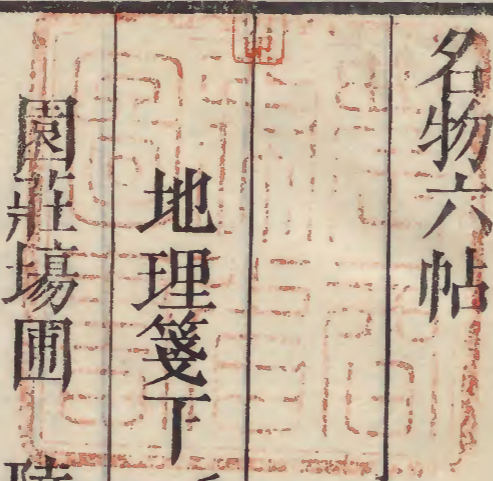 名物六帖
地理箋下
園莊場圃